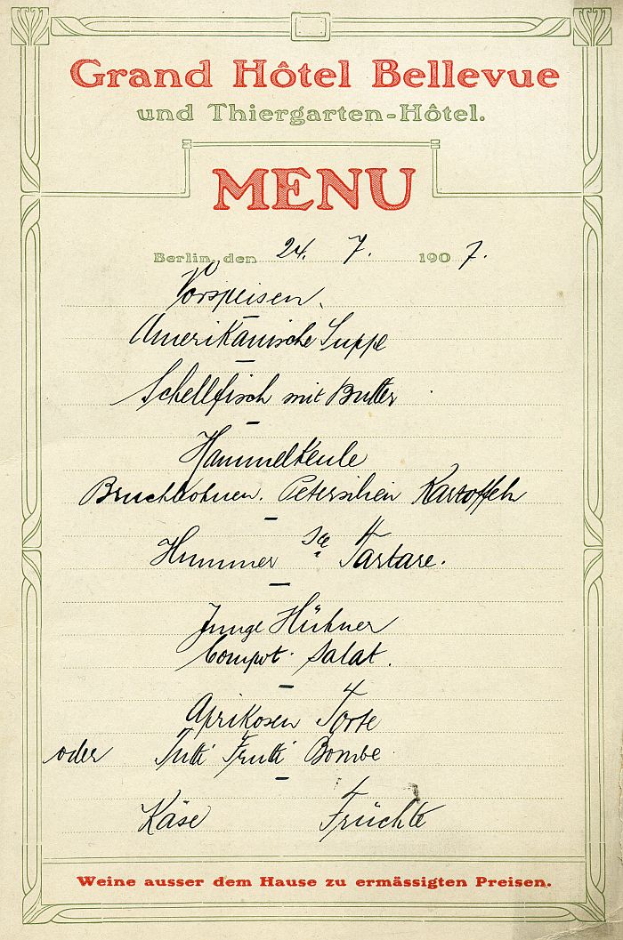 Grand Hôtel Bellevue
und Thiergarten-Hôtel.
MENU
Berlin, den 24. 7. 1907.
Vorspeisen.
Amerikanische Suppe
Schellfisch mit Butter
Hammelkeule
Bruchbohnen. Petersilien Kartoffeln
Hummer Sce Tartare.
Junge Hühner
Compot. Salat.
Aprikosen Torte
oder Tutti Frutti Bombe
Käse Früchte
Weine ausser dem Hause zu ermässigten Preisen.